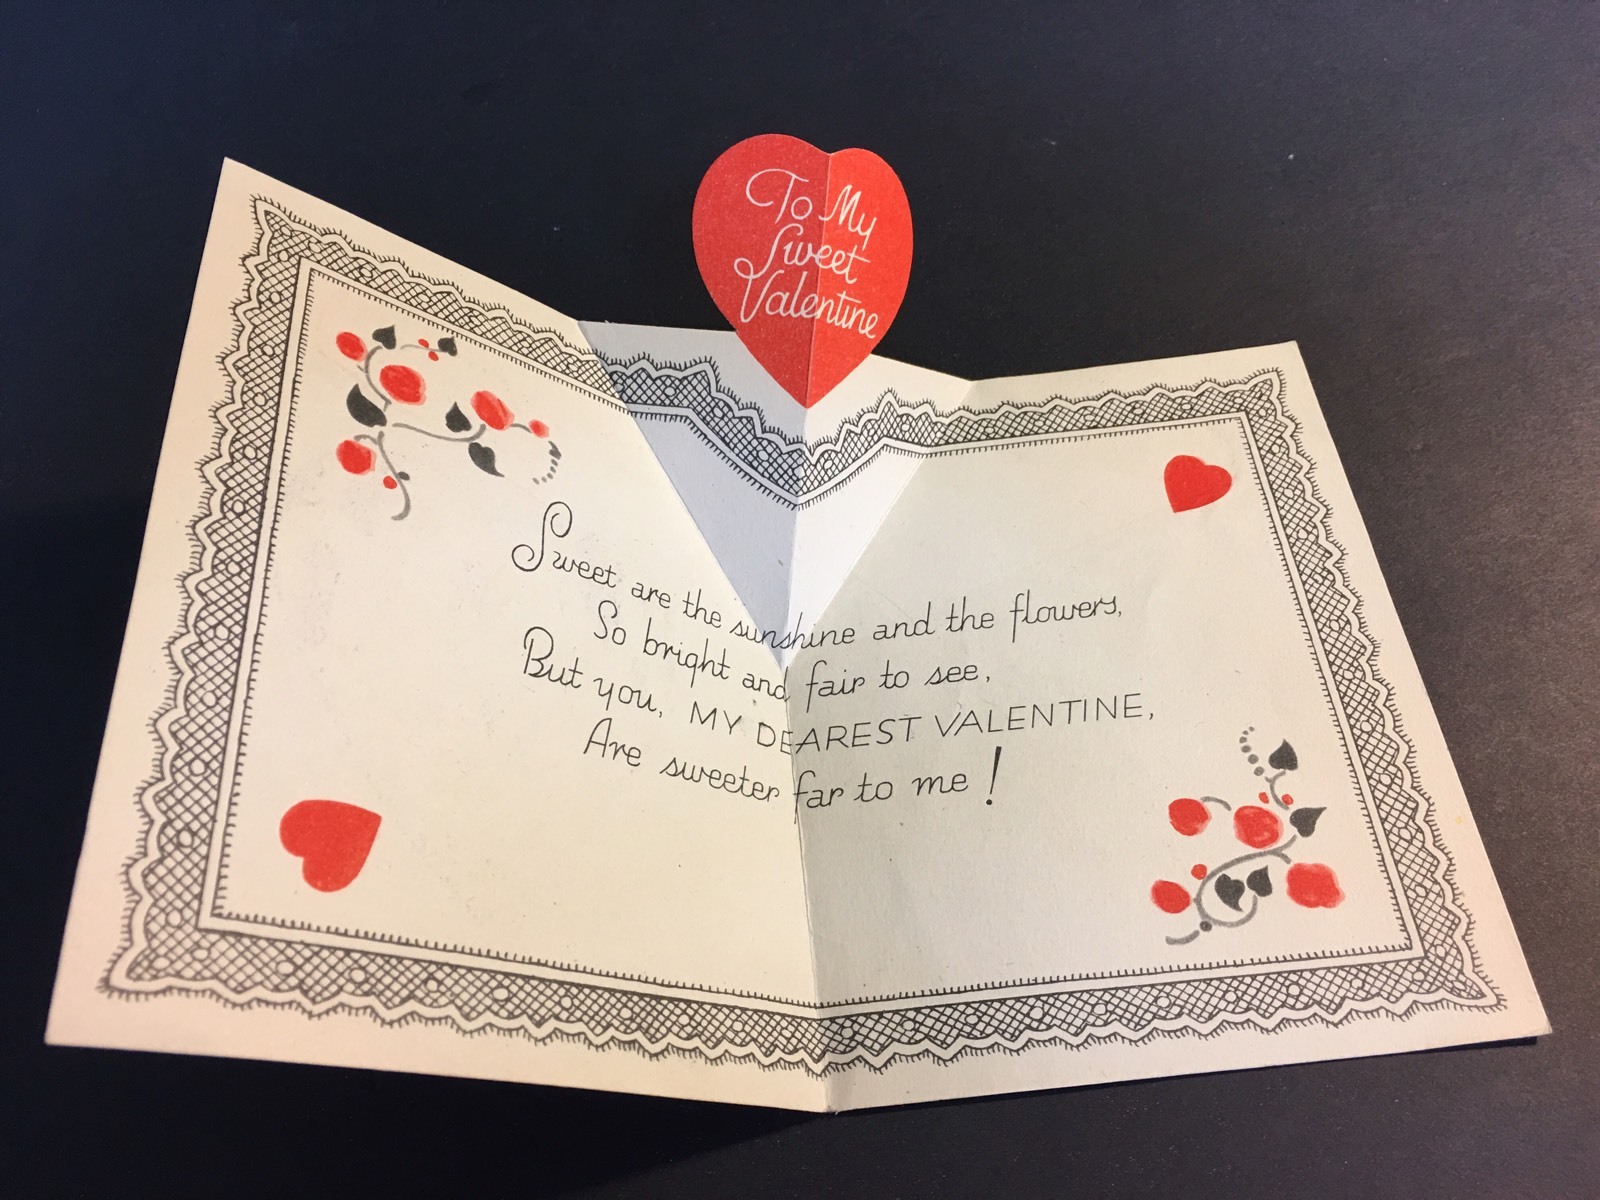 To My
Sweet
Valentine
Sweet are the sunshine and the flowers,
So bright and fair to see,
But you, MY DEAREST VALENTINE,
Are sweeter far to me!